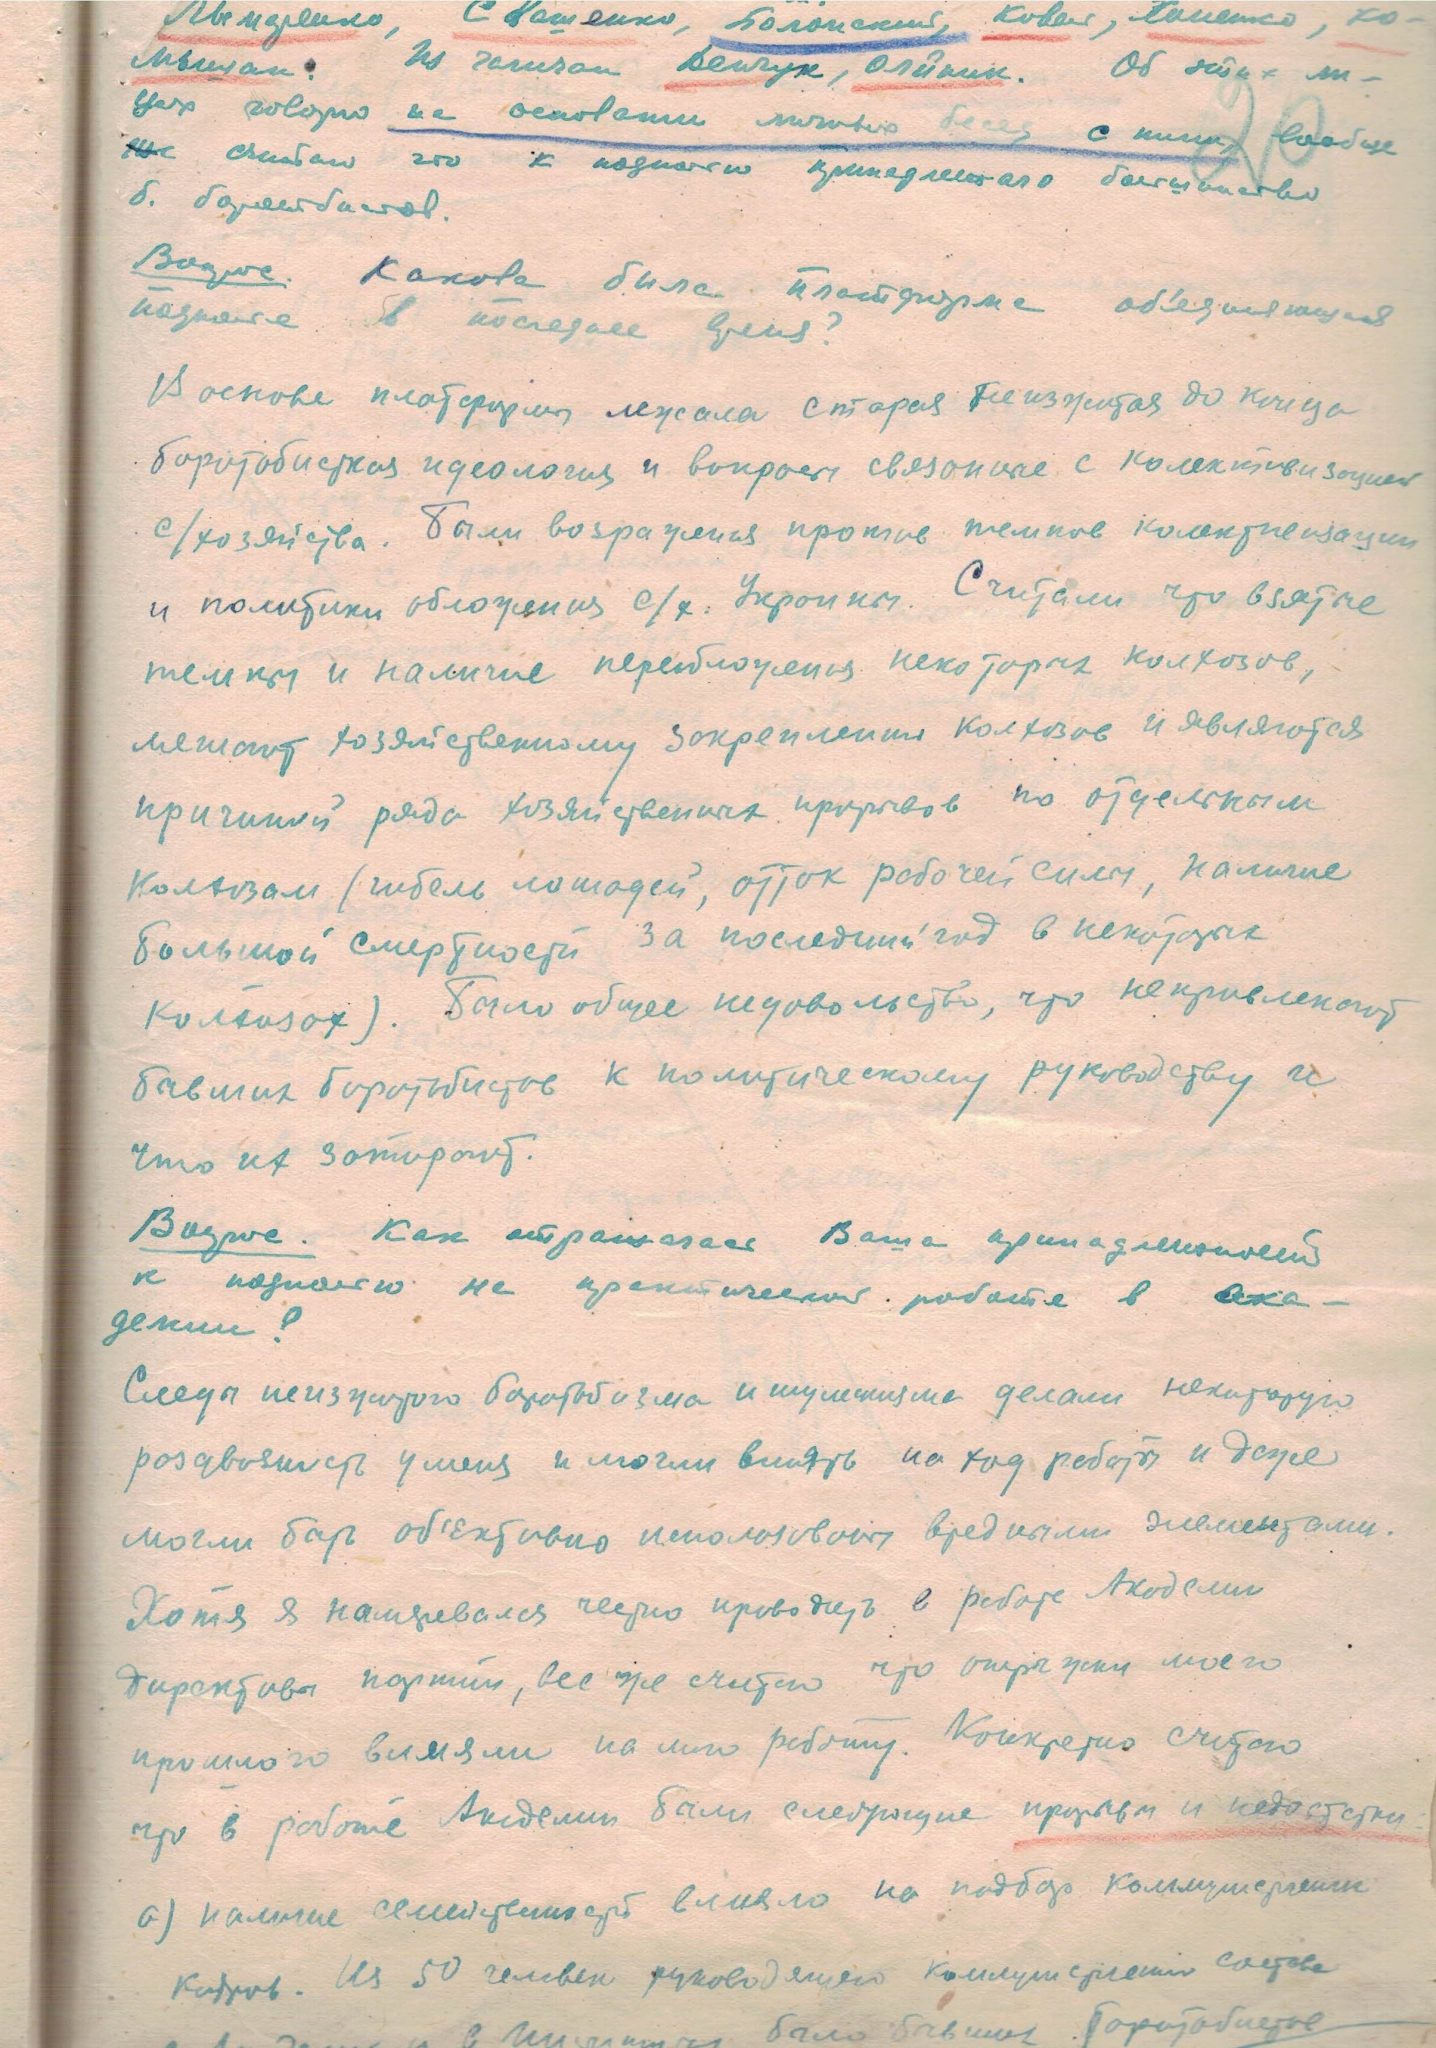 Лымаренко, Сташенко, Полонский, Ковел,
Демчук, Олійник. Об этих ли-
цах говорю на основании личных бесед с ними, вообще
же считаю что к подполью принадлежало большинство
б. боротбистов.
Вопрос. Какова была платформа об'единяющая
подполье в последнее время?
В основе платформы лежала старая неизжитая до конца
боротьбистская идеология и вопросы связаные с колективизацией
с/хозяйства. Были возражения против темпов колективизации
и политики обложения с/х. Украины. Считали что взятые
темпы и наличие переобложения некоторых колхозов,
мешают хозяйственному закреплению колхозов и являются
причиной ряда хозяйственных прорывов по отдельным
колхозам (гибель лошадей, отток рабочей силы, наличие
большой смертности за последний год в некоторых
колхозах). Было общее недовольство, что непривлекают
бывших боротьбистов к политическому руководству и
что их затирают.
Вопрос. Как отражалась Ваша принадлежность
к подполью на практической работе в Ака-
демии?
Следы неизжитого боротьбизма и шумскизма делали некоторую
раздвояность у меня и могли влиять на ход работы и даже
могли быть об'ективно использованы вредными элементами.
Хотя я намеревался честно проводить в работе Академии
директивы партии, все же считаю что отрыжки моего
прошлого влияли на мою работу. Конкретно считаю
что в работе Академии были следующие прорывы и недостатки:
а) наличие семейственности влияло на подбор коммунистических
кадров. Из 50 человек руководящего коммунистического состава
было бывших боротьбистов